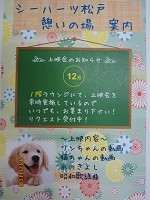 シーハーツ松戸
憩いの場 案内
上映会のお知らせ
12月
1階ラウンジにて、上映会を
常時実施しているので
いつでも、お集まり下さい!
リクエスト受付中!
〜上映内容〜
ワンちゃんの動画
猫ちゃんの動画
あいさよし
昭和歌謡格